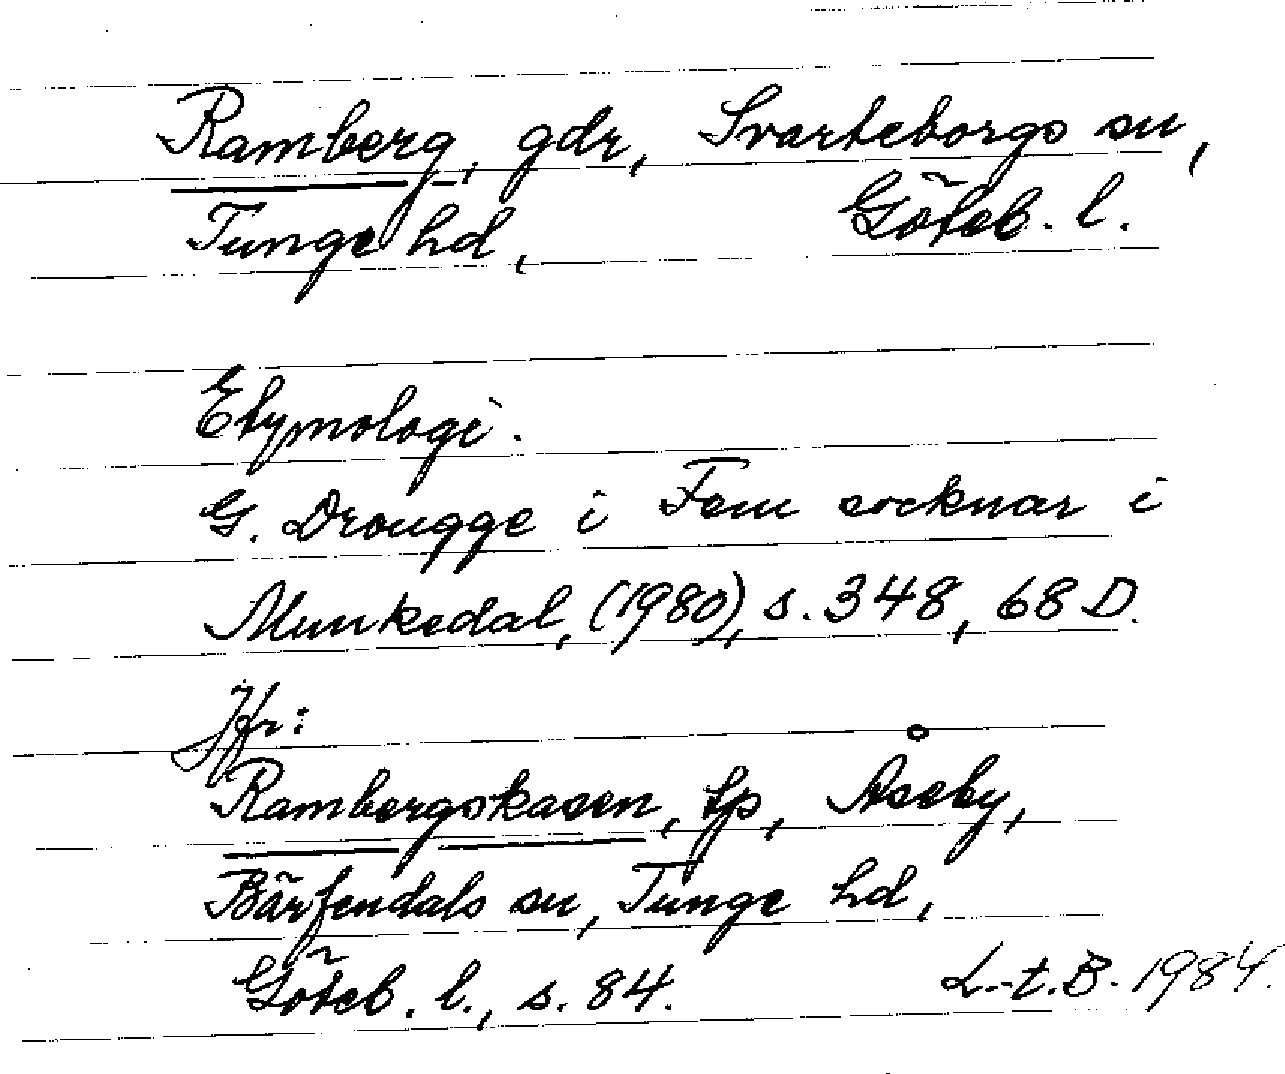 Ramberg, gdr, Svarteborgs sn,
Tunge hd, Göteb. l.
Etymologi.
G. Drougge i Fem socknar i
Munkedal, (1980), s. 348, 68 D.
Jfr:
Rambergskasen, tp, Åseby,
Bärfendals sn, Tunge hd,
Göteb. l., s. 84.
L.-t. B. 1984.